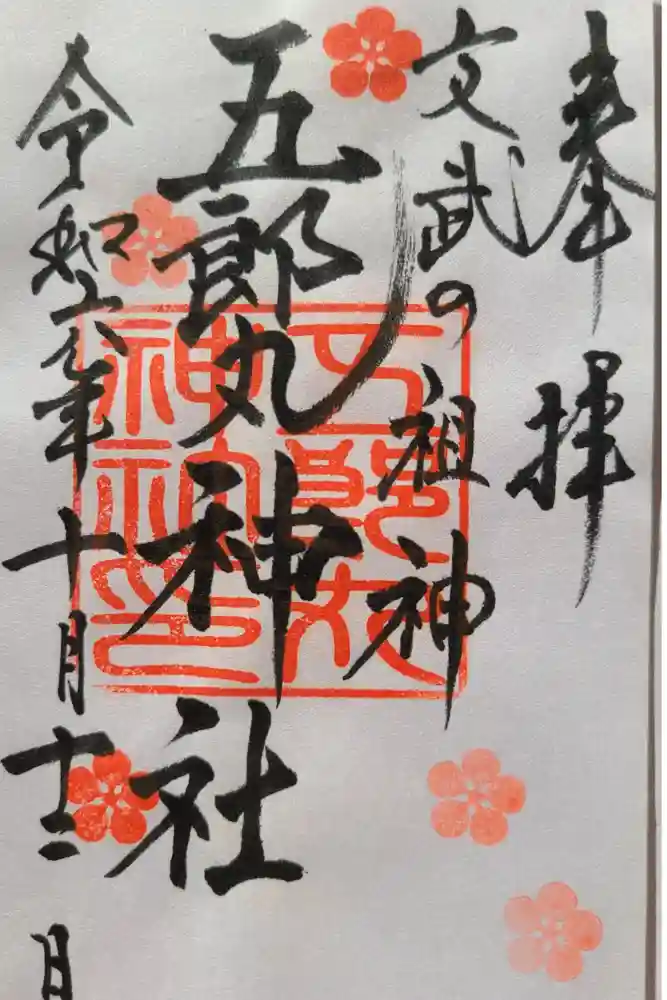 奉拝
文武の祖神
五郎丸神社
令和六年十月十二日
五郎丸
神社印